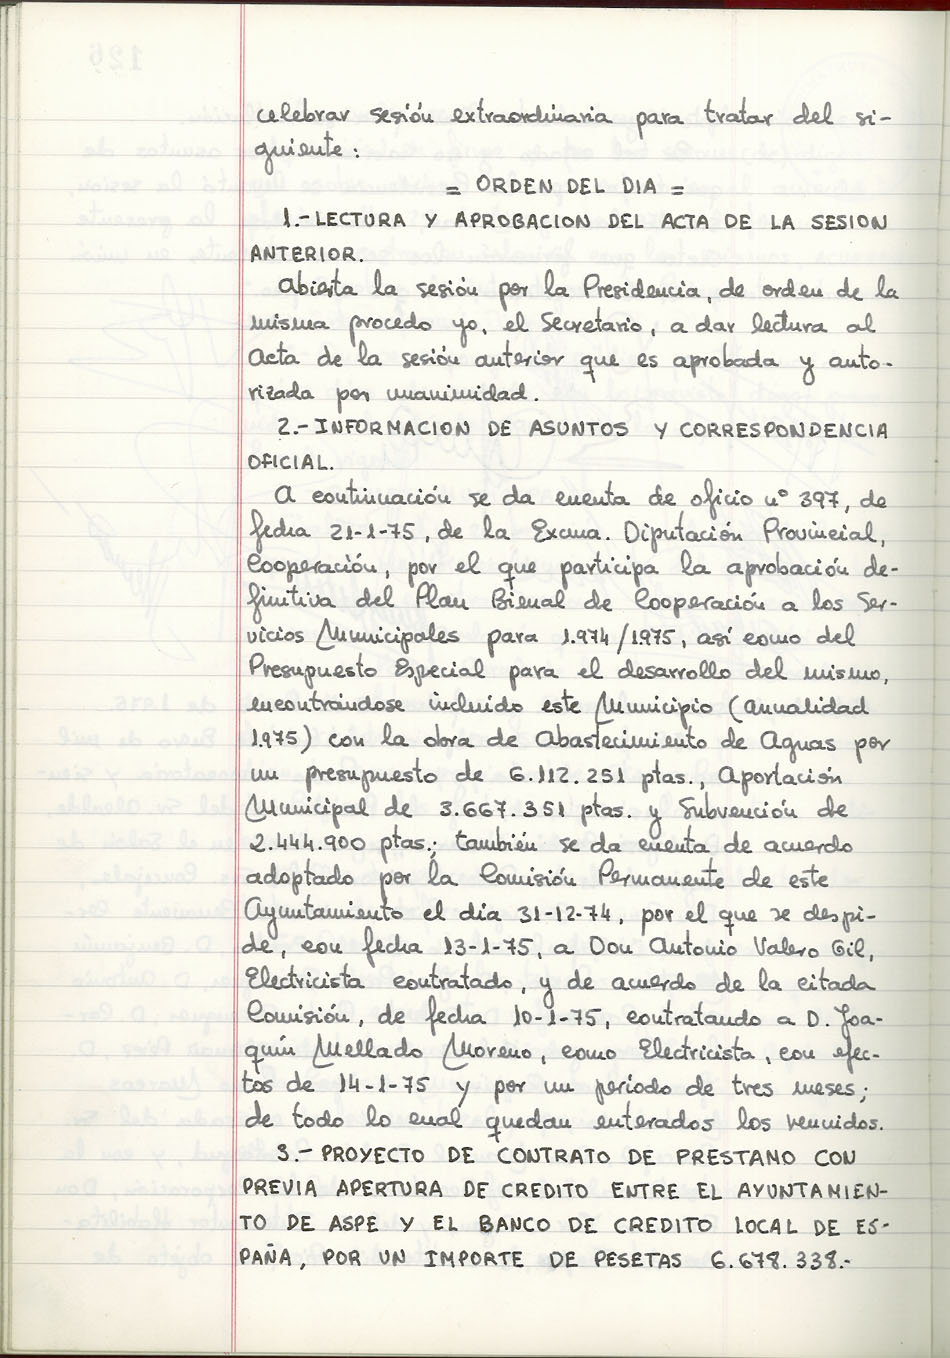 celebrar sesión extraordinaria para tratar del si-
guiente:
= ORDEN DEL DIA =
1.- LECTURA Y APROBACION DEL ACTA DE LA SESION
ANTERIOR.
Abierta la sesión por la Presidencia, de orden de la
misma procedo yo, el Secretario, a dar lectura al
Acta de la sesión anterior que es aprobada y auto-
rizada por unanimidad.
2.- INFORMACION DE ASUNTOS Y CORRESPONDENCIA
OFICIAL.
A continuación se da cuenta de oficio nº 397, de
fecha 21-1-75, de la Excma. Diputación Provincial,
Cooperación, por el que participa la aprobación de-
finitiva del Plan Bienal de Cooperación a los Ser-
vicios Municipales para 1.974/1975, así como del
Presupuesto Especial para el desarrollo del mismo,
encontrándose incluído este Municipio (anualidad
1.975) con la obra de Abastecimiento de Aguas por
un presupuesto de 6.112.251 ptas., Aportación
Municipal de 3.667.351 ptas. y Subvención de
2.444.900 ptas.; también se da cuenta de acuerdo
adoptado por la Comisión Permanente de este
Ayuntamiento el día 31-12-74, por el que se despi-
de, con fecha 13-1-75, a Don Antonio Valero Gil,
Electricista contratado, y de acuerdo de la citada
Comisión, de fecha 10-1-75, contratando a D. Joa-
quín Mellado Moreno, como Electricista, con efec-
tos de 14-1-75 y por un período de tres meses;
de todo lo cual quedan enterados los reunidos.
3.- PROYECTO DE CONTRATO DE PRESTAMO CON
PREVIA APERTURA DE CREDITO ENTRE EL AYUNTAMIEN-
TO DE ASPE Y EL BANCO DE CREDITO LOCAL DE ES-
PAÑA, POR UN IMPORTE DE PESETAS 6.678.338.-